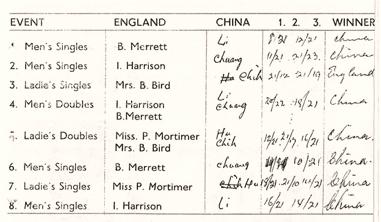 EVENT ENGLAND CHINA 1. 2. 3. WINNER
1. Men's Singles B. Merrett Li 12/21 China
2. Men's Singles I. Harrison Chuang 11/21 21/23 China
3. Ladie's Singles Mrs. B. Bird Hu Chih 21/12 21/19 England
4. Men's Doubles I. Harrison Li 20/22 15/21 China
B.Merrett Chuang
Ladie's Doubles Miss. P. Mortimer Hu China.
Mrs. B. Bird Chih
6. Men's Singles B. Merrett Chuang 10/21 China.
7. Ladie's Singles Miss P. Mortimer Hu China
8. Men's Singles I. Harrison Li 16/21 14/21 China